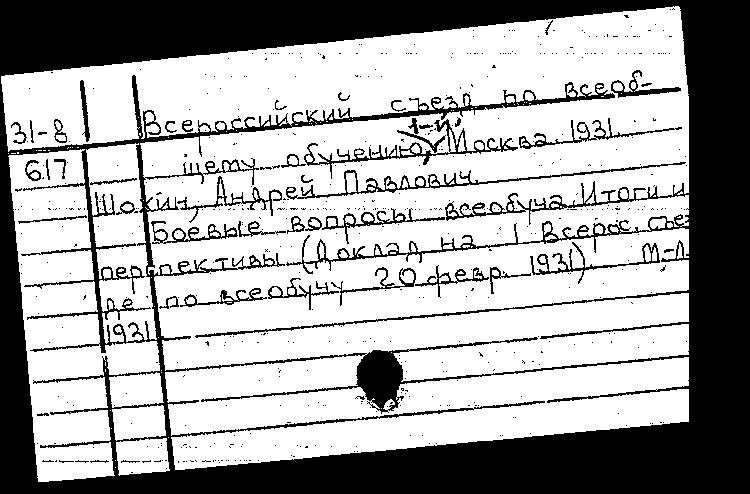 Всероссийский съезд по всеоб-
31-8
1-й
617 щему обучению, Москва. 1931.
Шохин, Андрей Павлович.
Боевые вопросы всеобуча. Итоги и
перспективы (Доклад на 1 Всерос. съез
де по всеобучу 20 февр. 1931). М.-Л.
1931.